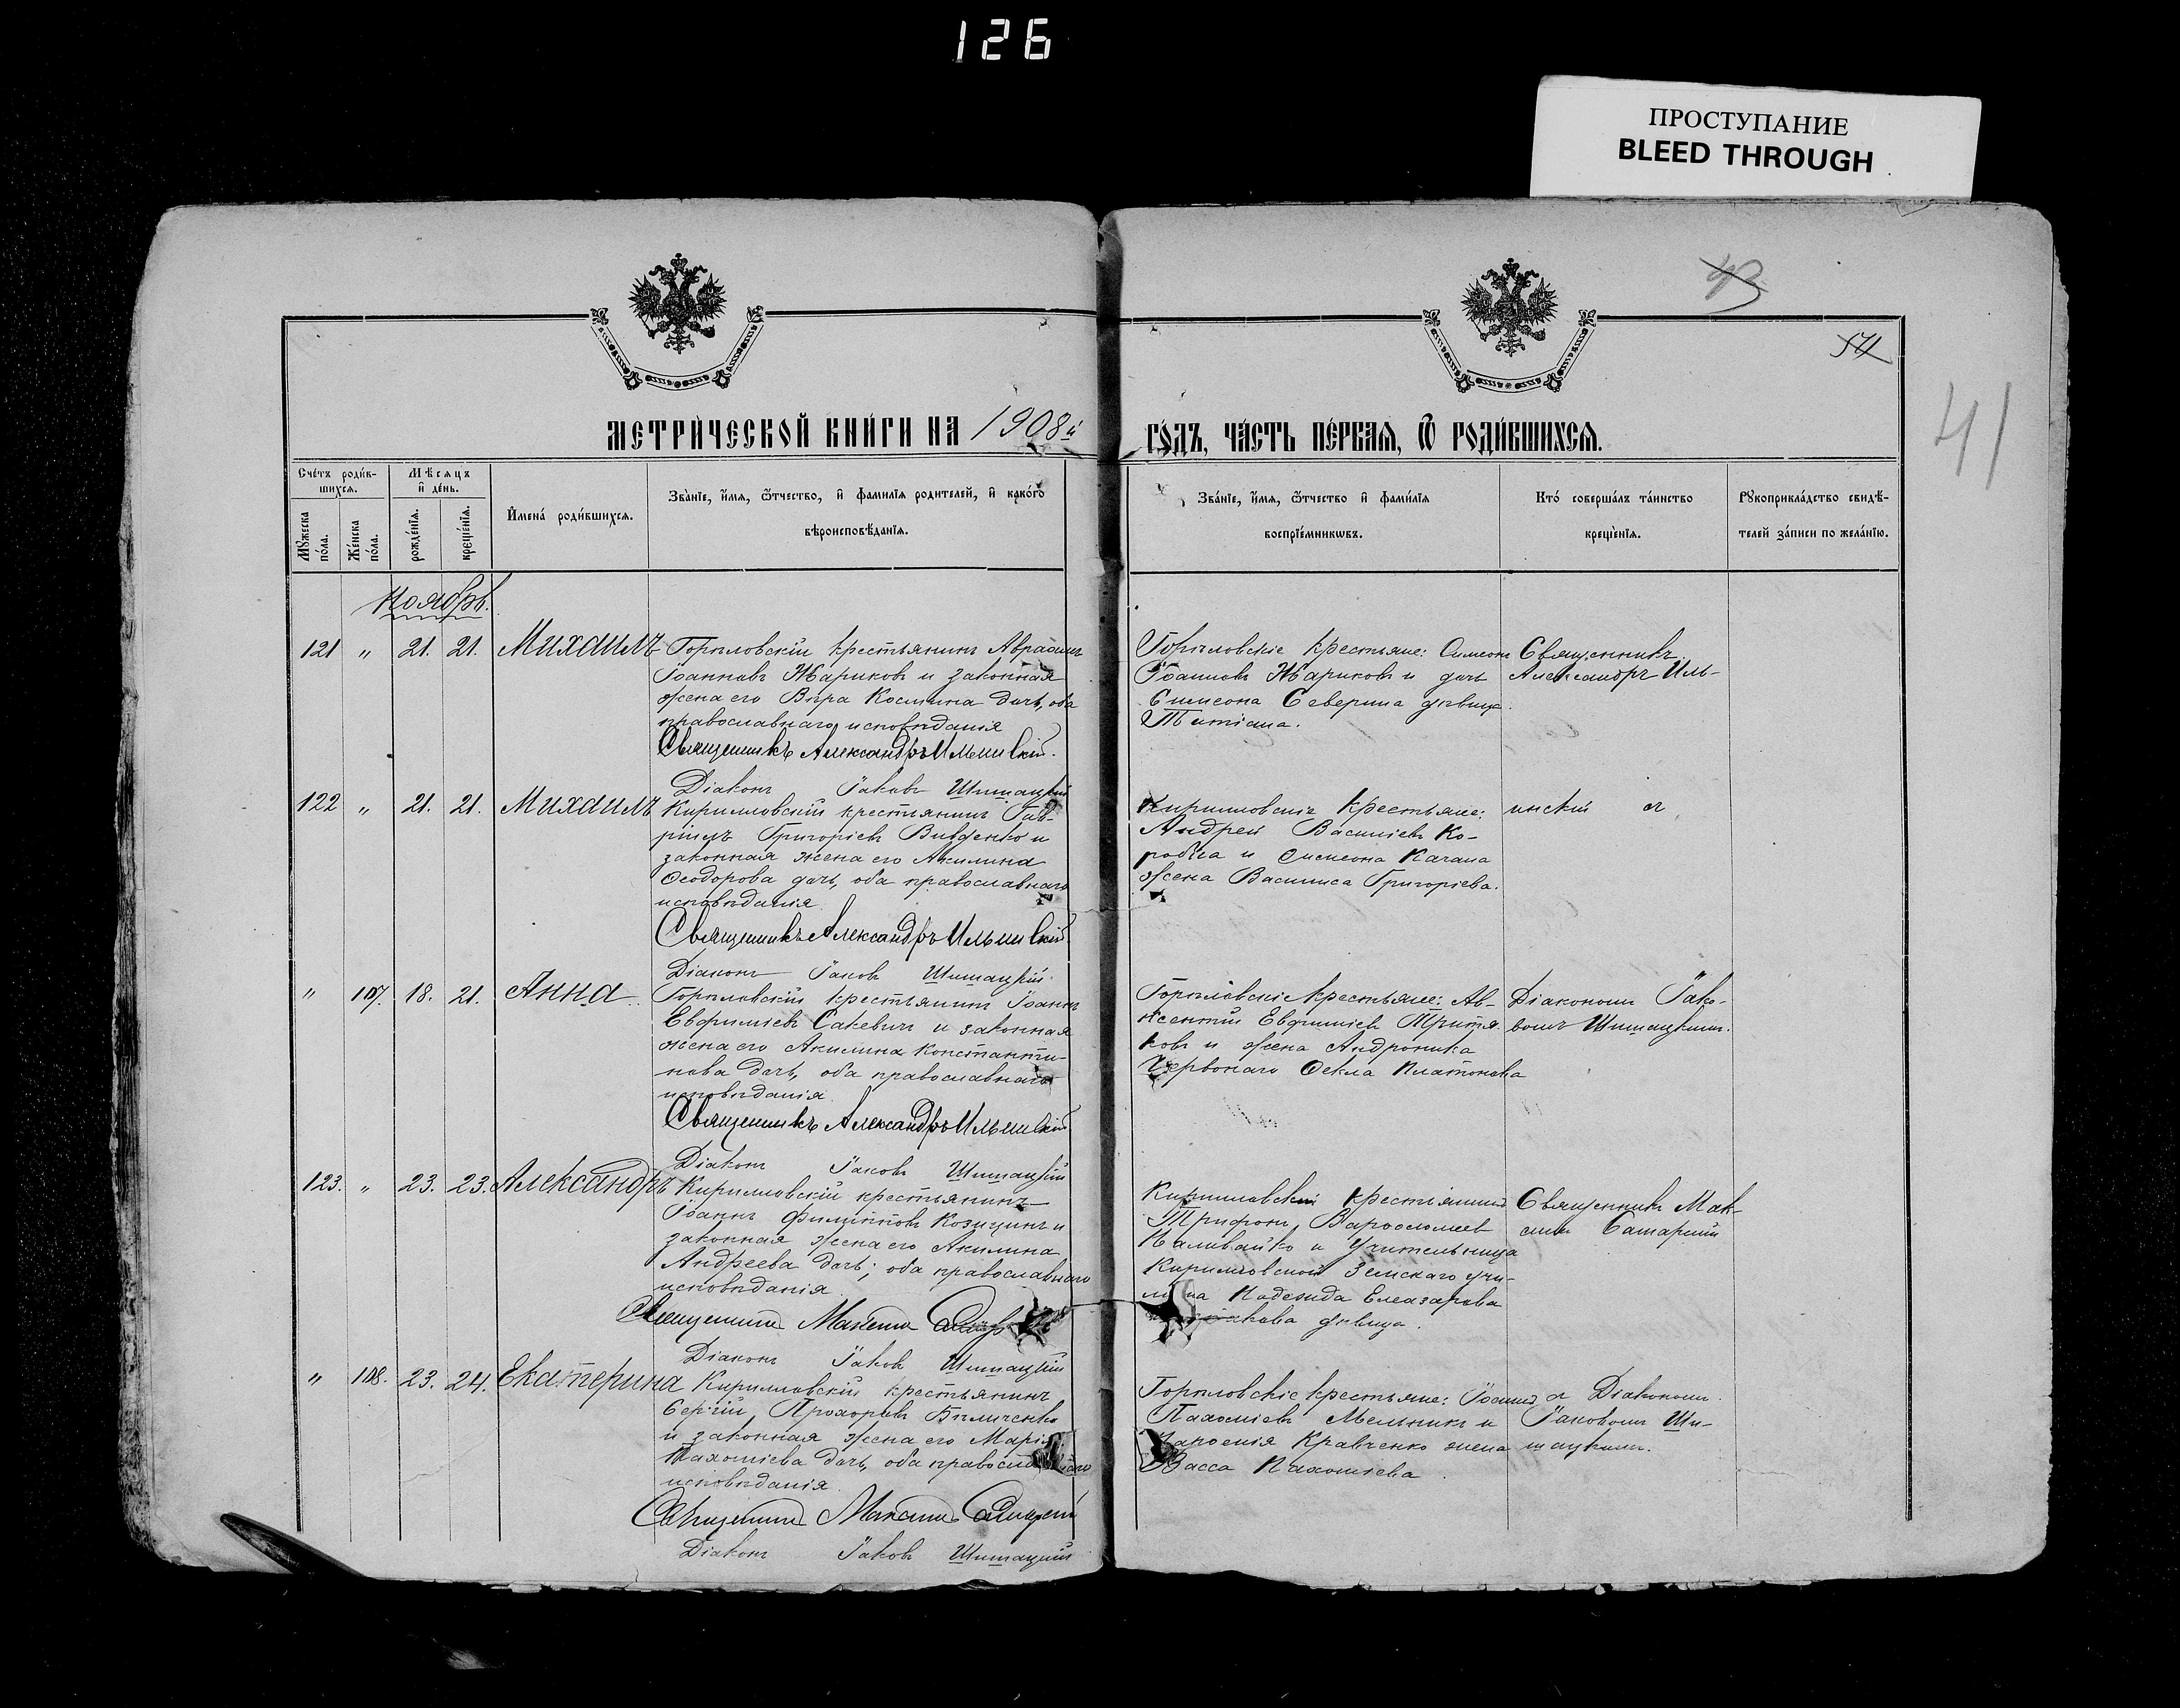 126
ПРОСТУПАНИЕ
BLEED THROUGH
43
54
41
МЕТРИ́ЧЕСКОЙ КНИ́ГИ НА 1908й
ГО́ДЪ, ЧА́СТЬ ПЕ́РВАѦ, Ѿ РОДИ́ВШИХСѦ.
Сче́тъ роди́в-
шихсѧ.
Мѣсѧцъ
и҆ де́нь.
Мꙋжеска
по́ла.
Же́нска
по́ла.
рожде́нїѧ.
креще́нїѧ.
И҆мена́ роди́вшихсѧ.
Зва́нїе, и҆́мѧ, ѻ҆́тчество, и҆ фамилїѧ родителей, и҆ како́гѡ
вѣроисповѣ́данїѧ.
Зва́нїе, и҆́мѧ, ѻ҆́тчество и҆ фами́лїѧ
воспрїе́мникѡвъ.
Кто̀ соверша́лъ та́инство
креще́нїѧ.
Рꙋкоприкла́дство свидѣ́-
телей за́писи по жела́нїю.
Ноябрь.
121 " 21. 21. Михаилъ
Горѣловскій крестьянинъ Авраамъ
Іоанновъ Жариковъ и законная
жена его Вѣра Космина дочь, оба
православнаго исповѣданія
Священникъ Александръ Ильинскій.
Діаконъ Іаковъ Шишацкій
Горѣловскіе крестьяне: Симеонъ
Іоанновъ Жариковъ и дочь
Симеона Северина дѣвица
Татіана.
Священникъ
Александръ Иль-
122 " 21. 21. Михаилъ
Кирилловскій крестьянинъ Гав-
ріилъ Григоріевъ Вивденко и
законная жена его Акилина
Ѳеодорова дочь, оба православнаго
исповѣданія
Священникъ Александръ Ильинскій
Діаконъ Іаковъ Шишацкій
Кирилловскіе крестьяне:
Андрей Василіевъ Ко-
робка и Симеона Качана
жена Василиса Григоріева.
инскій
" 107. 18. 21. Анна
Горѣловскій крестьянинъ Іоаннъ
Евфиміевъ Сакевичъ и законная
жена его Акилина Константи-
нова дочь, оба православнаго
исповѣданія
Священникъ Александръ Ильинскій
Діаконъ Іаковъ Шишацкій
Горѣловскіе крестьяне: Ав-
ксентій Евфиміевъ Третя-
ковъ и жена Андроника
Червонаго Ѳекла Платонова
Діакономъ Іако-
вомъ Шишацкимъ.
123. " 23. 23. Александръ
Кирилловскій крестьянинъ
Іоаннъ Филипповъ Козицинъ и
законная жена его Акилина
Андреева дочь; оба православнаго
исповѣданія
Священникъ Максимъ
Діаконъ Іаковъ Шишацкій
Кирилловскій крестьянинъ
Трифонъ Варѳоломеевъ
Наливайко и учительница
Кирилловской Земскаго учи-
Надежда Елеазарова
дѣвица.
Священникъ Мак-
симъ
" 108. 23. 24. Екатерина
Кирилловскій крестьянинъ
Сергій Прохоровъ Биличенко
и законная жена его Марія
Пахоміева дочь, оба православнаго
исповѣданія
Священникъ Максимъ
Діаконъ Іаковъ Шишацкій
Горѣловскіе крестьяне: Іоаннъ
Пахоміевъ Мельникъ и
Кравченко жена
Васса Пахоміева
Діакономъ
Іаковомъ Ши-
шацкимъ.